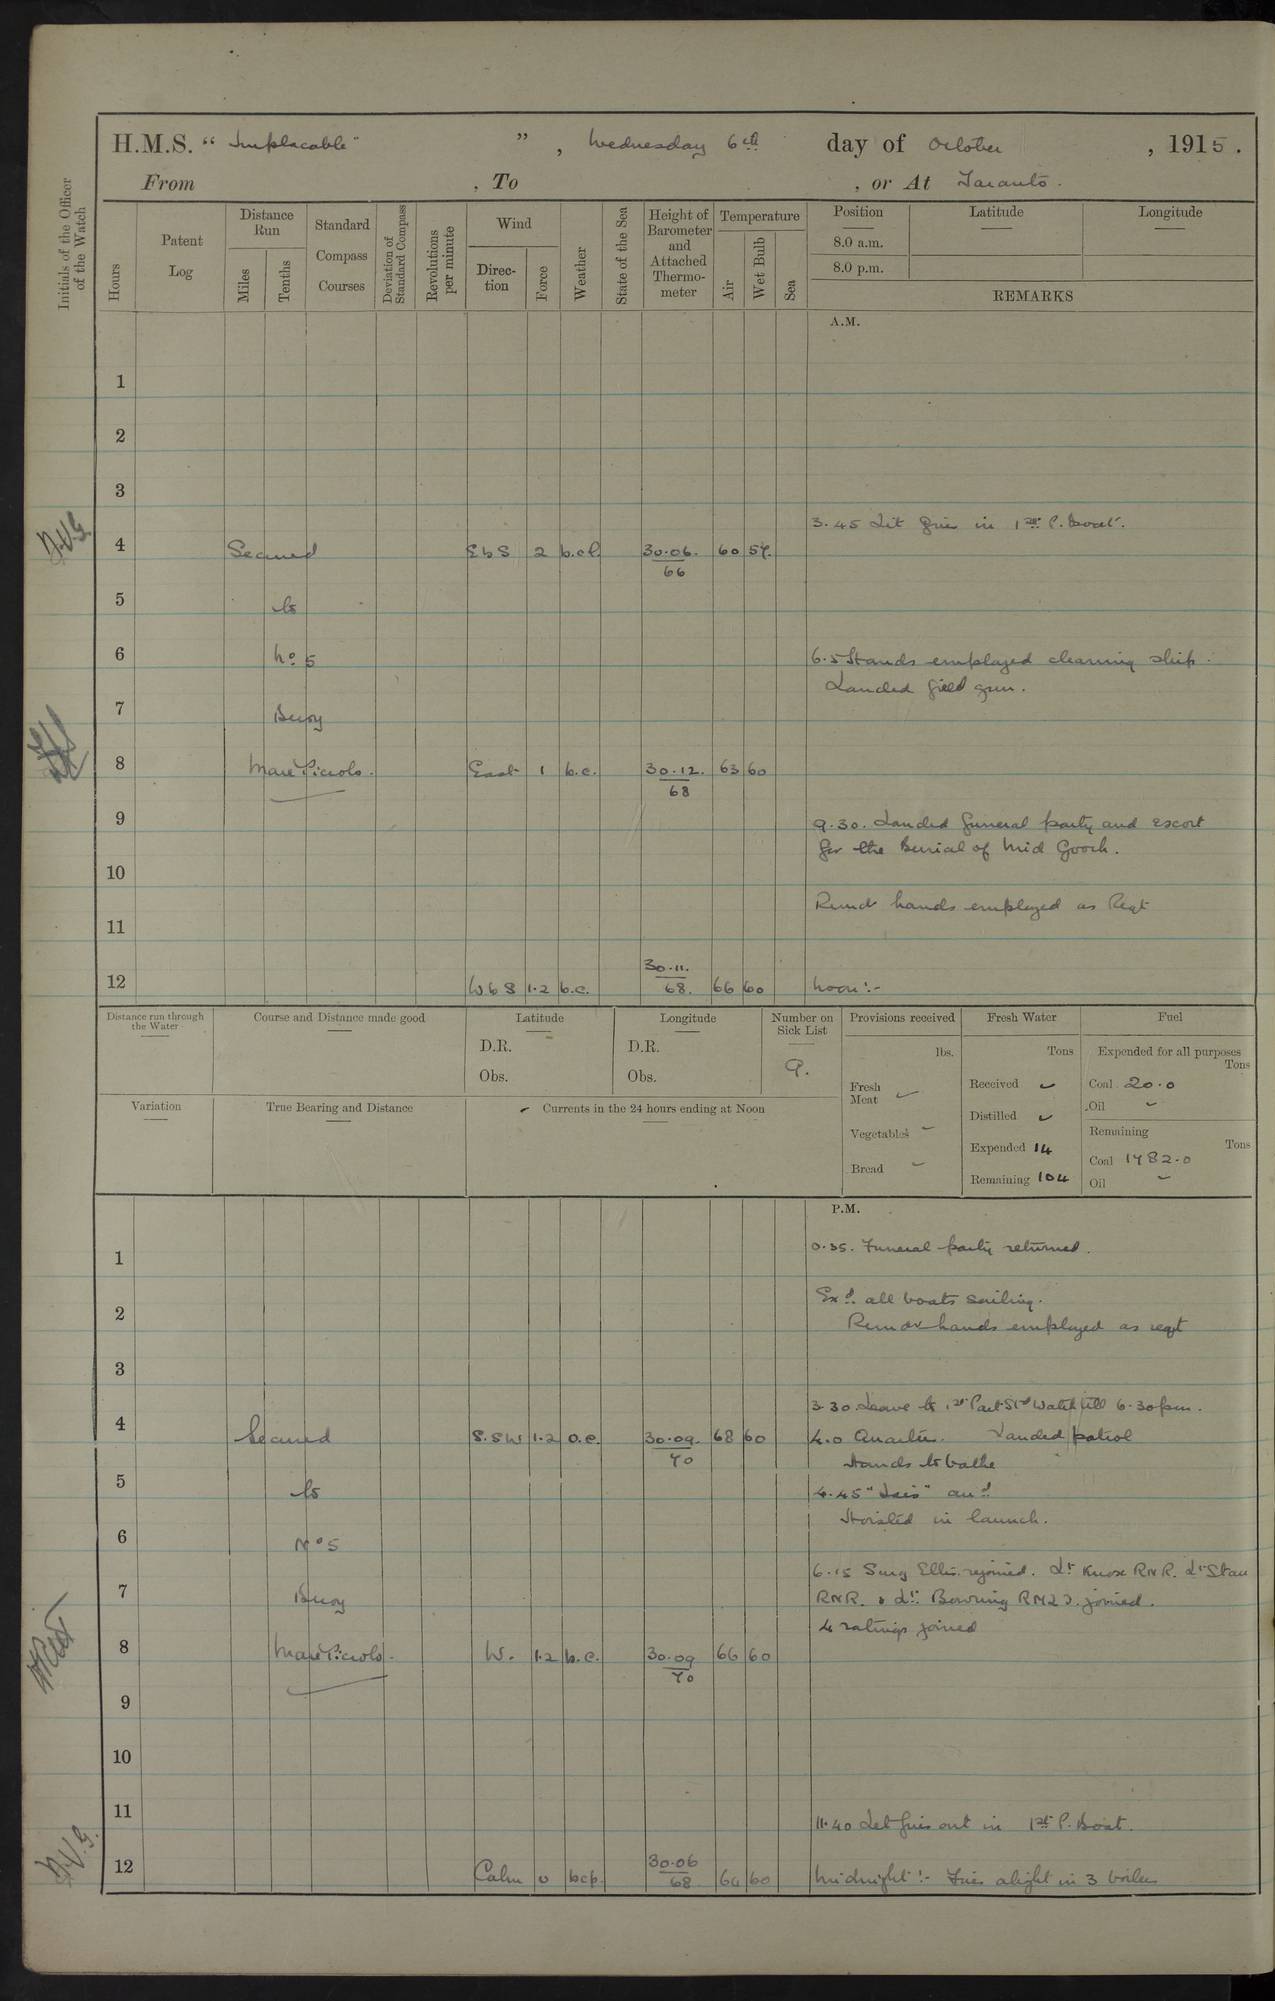 H.M.S. "Implacable", Wednesday 6th day of October, 1915.
From , To , or At Taranto.
Initials of the Officer of the Watch
Hours
Patent Log
Distance Run
Miles
Tenths
Standard Compass Courses
Deviation of Standard Compass
Revolutions per minute
Wind
Direction
Force
Weather
State of the Sea
Height of Barometer and Attached Thermometer
Temperature
Air
Wet Bulb
Sea
Position
8.0 a.m.
8.0 p.m.
Latitude
Longitude
REMARKS
A.M.
1
2
3
3.45 Lit fires in 1st P. Boat.
4 Secured E b S 2 b.c.p. 30.06. 66 60 57.
5 to
6 No 5 6.5 Hands employed cleaning ship.
Landed field gun.
7 Buoy
8 Mare Piccolo. East 1 b.c. 30.12. 68 63 60
9 9.30. Landed funeral party and escort
for the Burial of Mid Gooch.
10
Remdr hands employed as Reqt
11
12 W b S 1.2 b.c. 30.11. 68. 66 60 Noon:-
Distance run through the Water
Course and Distance made good
Latitude
D.R.
Obs.
Longitude
D.R.
Obs.
Number on Sick List
9.
Provisions received
lbs.
Fresh Meat
Vegetables
Bread
Fresh Water
Tons
Received
Distilled
Expended 14
Remaining 104
Fuel
Expended for all purposes
Tons
Coal 20.0
Oil
Remaining
Tons
Coal 1782.0
Oil
Variation
True Bearing and Distance
Currents in the 24 hours ending at Noon
P.M.
0.35. Funeral party returned.
1
Exd. all boats sailing.
2 Remdr hands employed as reqt
3
3.30 Leave to 1st Part Std Watch till 6.30pm.
4 Secured S.SW 1.2 o.c. 30.09. 70 68 60 4.0 Quarters. Landed patrol
Hands to bathe
5 to 4.45 "Isis" arrd
Hoisted in launch.
6 No 5
6.15 Surg Ellis rejoined. Lt Knox RNR. Lt
7 Buoy RNR. & Lt. Bowring joined.
4 ratings joined
8 Mare Piccolo. W. 1.2 b.c. 30.09 70 66 60
9
10
11
11.40 Let fires out in 1st P. Boat.
12 Calm 0 bcp. 30.06 68 64 60 Midnight:- Fires alight in 3 boilers